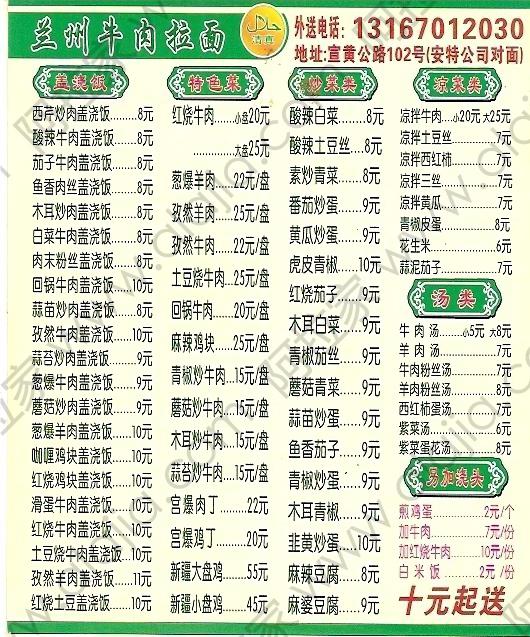 兰州牛肉拉面
حلال
清真
外送电话：13167012030
地址：宣黄公路102号(安特公司对面)
盖浇饭
西芹炒肉盖浇饭......8元
酸辣牛肉盖浇饭......8元
茄子牛肉盖浇饭......8元
鱼香肉丝盖浇饭......8元
木耳炒肉盖浇饭......8元
白菜牛肉盖浇饭......8元
肉末粉丝盖浇饭......8元
回锅牛肉盖浇饭......10元
蒜苗炒肉盖浇饭......8元
孜然牛肉盖浇饭......10元
蒜苔炒肉盖浇饭......9元
葱爆牛肉盖浇饭......9元
蘑菇炒肉盖浇饭......9元
葱爆羊肉盖浇饭......10元
咖喱鸡块盖浇饭......10元
红烧鸡块盖浇饭......10元
滑蛋牛肉盖浇饭......10元
红烧牛肉盖浇饭......10元
土豆烧牛肉盖浇饭...10元
孜然羊肉盖浇饭......11元
红烧土豆盖浇饭......10元
特色菜
红烧牛肉......小盘20元
......大盘25元
葱爆羊肉......22元/盘
孜然羊肉......25元/盘
孜然牛肉......22元/盘
土豆烧牛肉...25元/盘
回锅牛肉......20元/盘
麻辣鸡块......25元/盘
青椒炒牛肉...15元/盘
蘑菇炒牛肉...15元/盘
木耳炒牛肉...15元/盘
蒜苔炒牛肉...15元/盘
宫爆肉丁......22元
宫爆鸡丁......20元
新疆大盘鸡......55元
新疆小盘鸡......45元
炒菜类
酸辣白菜......8元
酸辣土豆丝...8元
素炒青菜......8元
番茄炒蛋......9元
黄瓜炒蛋......9元
虎皮青椒......10元
红烧茄子......9元
木耳白菜......9元
青椒茄丝......9元
蘑菇青菜......9元
蒜苗炒蛋......9元
鱼香茄子......9元
青椒炒蛋......9元
木耳青椒......9元
韭黄炒蛋......10元
麻辣豆腐......8元
麻婆豆腐......9元
凉菜类
凉拌牛肉...小20元 大25元
凉拌土豆丝......7元
凉拌西红柿......7元
凉拌三丝......7元
凉拌黄瓜......7元
青椒皮蛋......8元
花生米......6元
蒜泥茄子......7元
汤类
牛肉汤......小5元 大8元
羊肉汤......7元
牛肉粉丝汤......7元
羊肉粉丝汤......8元
西红柿蛋汤......7元
紫菜汤......6元
紫菜蛋花汤......8元
另加浇头
煎鸡蛋......2元/个
加牛肉......7元/份
加红烧牛肉......10元/份
白米饭......2元/份
十元起送